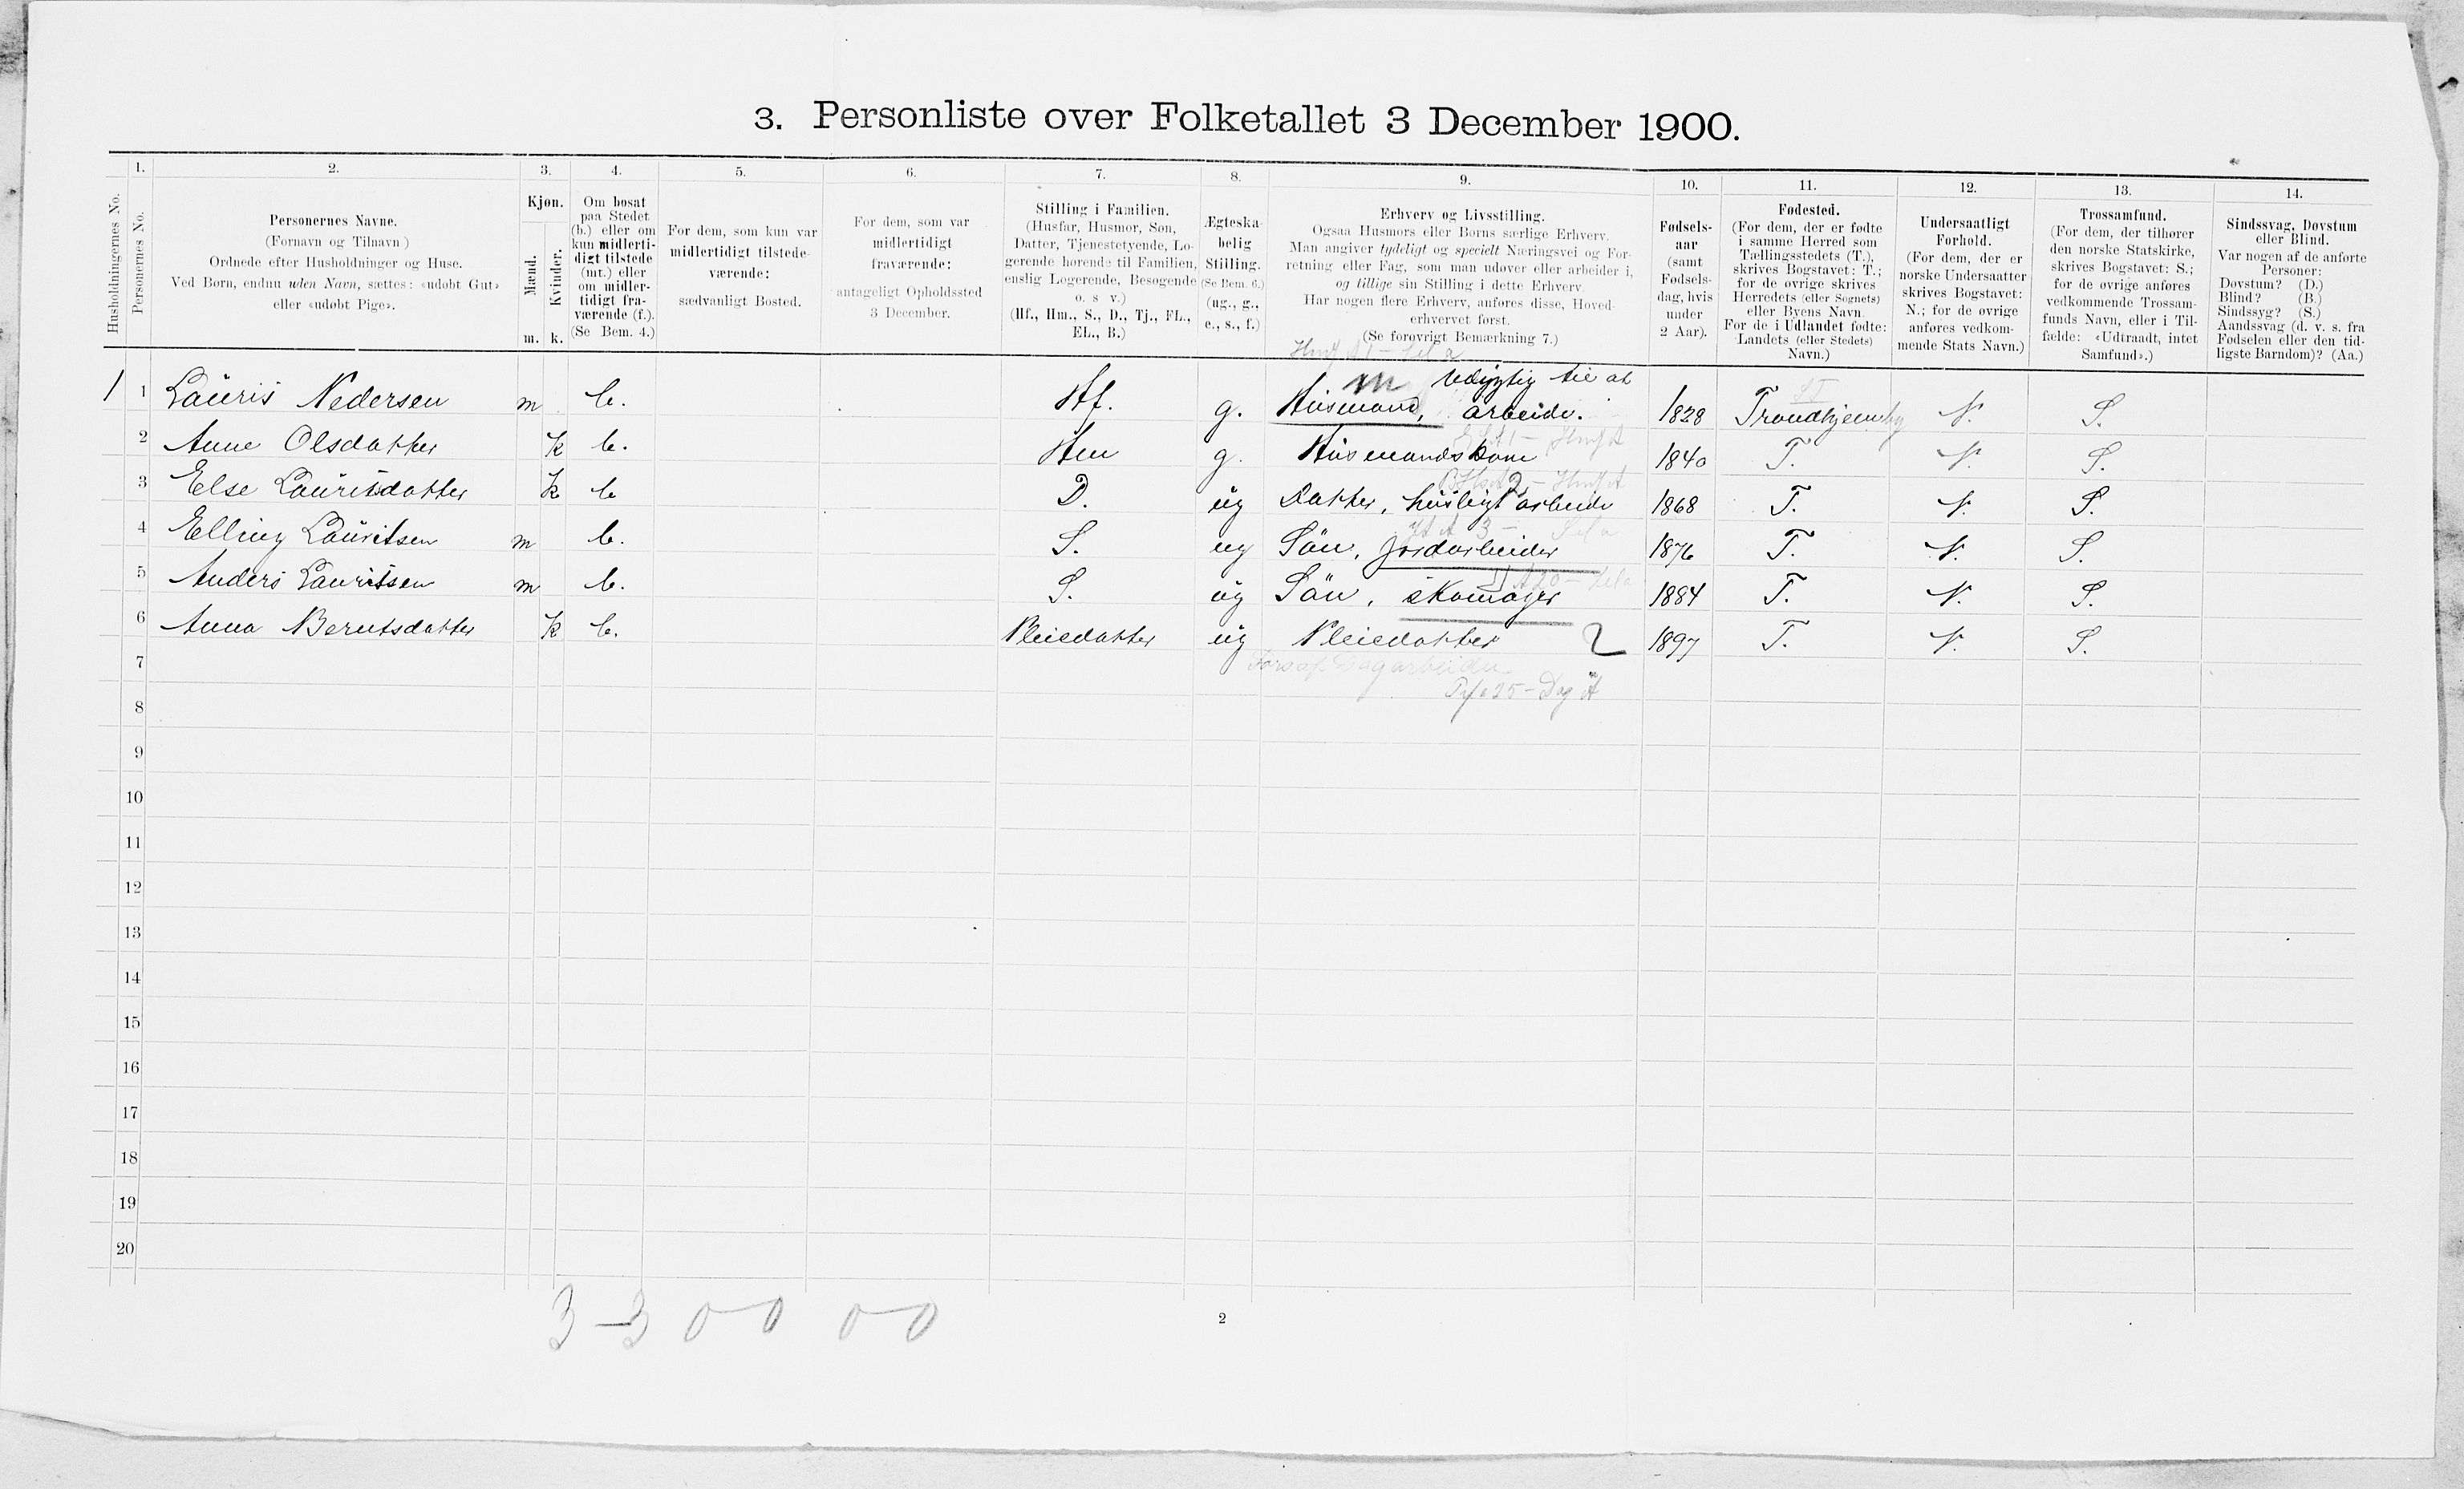 3. Personliste over Folketallet 3 December 1900.
1. 2. 3. 4. 5. 6. 7. 8. 9. 10. 11. 12. 13. 14.
Husholdningernes No.
Personernes No.
Personernes Navne.
(Fornavn og Tilnavn )
Ordnede efter Husholdninger og Huse.
Ved Børn, endnu uden Navn, sættes: «udøbt Gut»
eller «udøbt Pige».
Kjøn.
Mænd.
Kvinder.
m. k.
Om bosat
paa Stedet
(b.) eller om
kun midlerti-
digt tilstede
(mt.) eller
om midler-
tidigt fra-
værende (f.).
(Se Bem. 4.)
For dem, som kun var
midlertidigt tilstede-
værende:
sædvanligt Bosted.
For dem, som var
midlertidigt
fraværende:
antageligt Opholdssted
3 December.
Stilling i Familien.
(Husfar, Husmor, Søn,
Datter, Tjenestetyende, Lo-
gerende hørende til Familien,
enslig Logerende, Besøgende
o. s v.)
(Hf., Hm., S., D., Tj., FL.,
EL., B.)
Ægteska-
belig
Stilling.
(Se Bem. 6.)
(ug., g.,
e., s., f.)
Erhverv og Livsstilling.
Ogsaa Husmors eller Børns særlige Erhverv.
Man angiver tydeligt og specielt Næringsvei og For-
retning eller Fag, som man udøver eller arbeider i,
og tillige sin Stilling i dette Erhverv.
Har nogen flere Erhverv, anføres disse, Hoved-
erhvervet først.
(Se forøvrigt Bemærkning 7.)
Fødsels-
aar
(samt
Fødsels-
dag, hvis
under
2 Aar).
Fødested.
(For dem, der er fødte
i samme Herred som
Tællingsstedets (T.),
skrives Bogstavet: T.;
for de øvrige skrives
Herredets (eller Sognets)
eller Byens Navn.
For de i Udlandet fødte:
Landets (eller Stedets)
Navn.)
Undersaatligt
Forhold.
(For dem, der er
norske Undersaatter
skrives Bogstavet:
N.; for de øvrige
anføres vedkom-
mende Stats Navn.)
Trossamfund.
(For dem, der tilhører
den norske Statskirke,
skrives Bogstavet: S.;
for de øvrige anføres
vedkommende Trossam-
funds Navn, eller i Til-
fælde: «Udtraadt, intet
Samfund».)
Sindssvag, Døvstum
eller Blind.
Var nogen af de anførte
Personer:
Døvstum? (D.)
Blind? (B.)
Sindssyg? (S.)
Aandssvag (d. v. s. fra
Fødselen eller den tid-
ligste Barndom)? (Aa.)
1 1 Lauris Pedersen m b. Hf. g. Husmand, Udygtig til at arbeide. 1828 Trondhjem by N. S.
2 Anne Olsdatter k b. Hm g. Husmandskone 1840 T. N. S.
3 Else Laurisdatter k b D. ug Datter, husligt arbeide 1868 T. N. S.
4 Elling Lauritsen m b. S. ug Sön, jordarbeider 1876 T. N. S.
5 Anders Lauritsen m b. S. ug Sön, skomager 1884 T. N. S.
6 Anna Berntsdatter k b. Pleiedatter ug Pleiedatter 2 1897 T. N. S.
7 Forsøp Dagarbeider
8
9
10
11
12
13
14
15
16
17
18
19
20
3-3 0-0 0-0
2